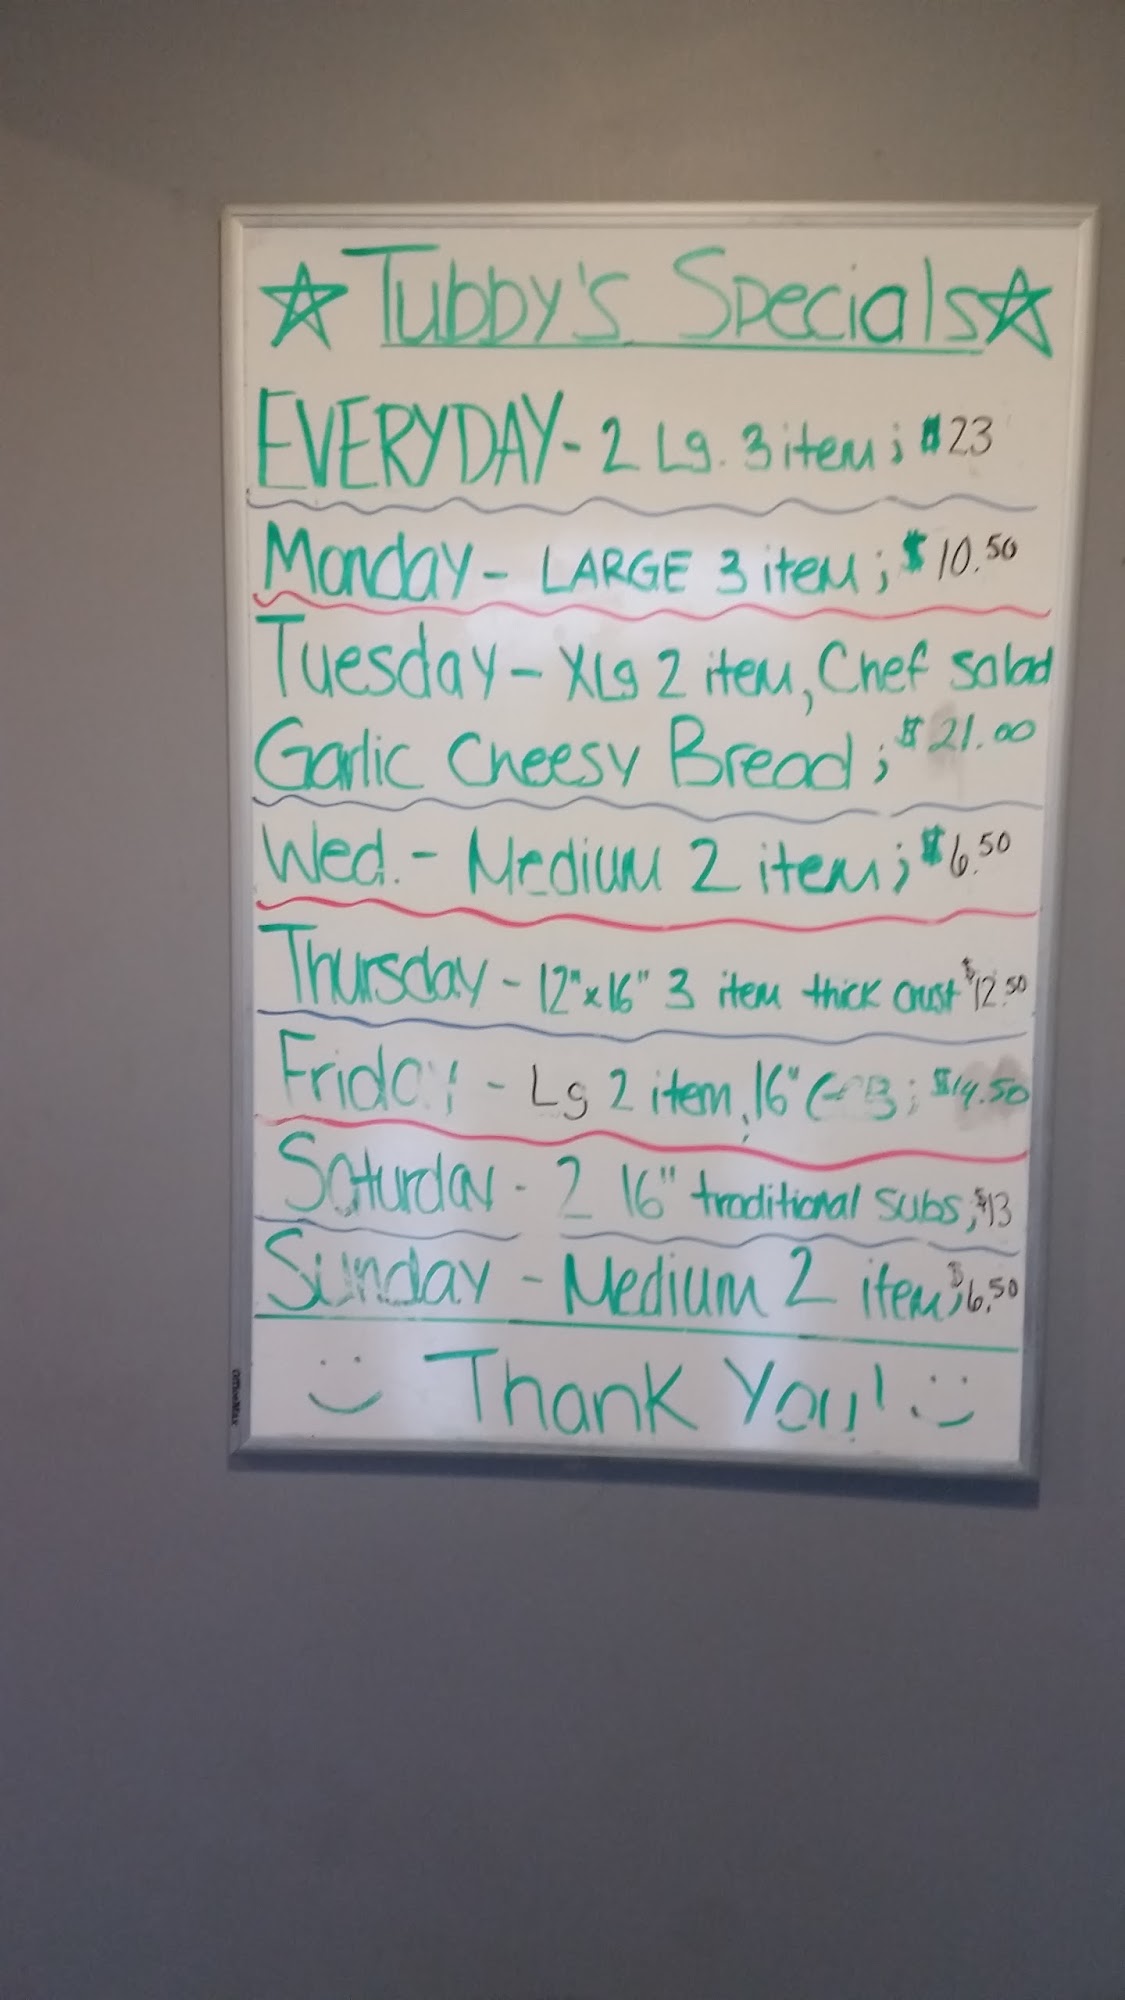 ☆ Tubby's Specials ☆
EVERYDAY - 2 Lg. 3 item; $23
Monday - LARGE 3 item; $10.50
Tuesday - XLg 2 item, Chef Salad
Garlic Cheesy Bread; $21.00
Wed. - Medium 2 item; $6.50
Thursday - 12"x16" 3 item thick crust $12.50
Friday - Lg 2 item, 16" $14.50
Saturday - 2 16" traditional subs, $13
Sunday - Medium 2 item; $6.50
Thank You!
OfficeMax